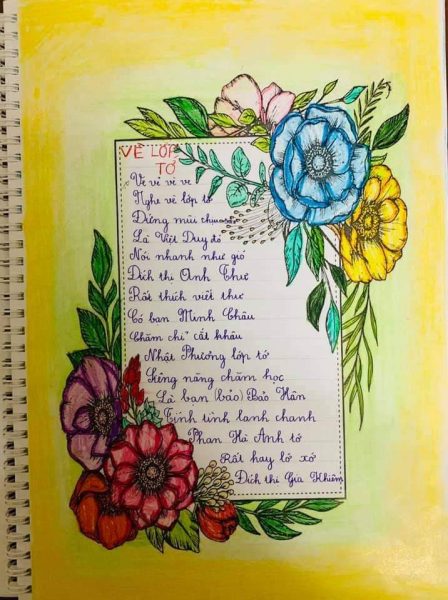 VÈ LỚP
TỚ
Vè vẻ vè ve
Nghe vè lớp tớ
Đứng mũi chịu
Là Việt Duy đó
Nói nhanh như gió
Đích thị Anh Thư
Rất thích viết thư
Có bạn Minh Châu
Chăm chỉ" cắt khâu
Nhật Phương lớp tớ
Siêng năng chăm học
Là bạn (bảo) Bảo Hân
Tính tình lanh chanh
Phan Hà Anh tớ
Rất hay lớ xớ
Đích thị Gia Khiêm